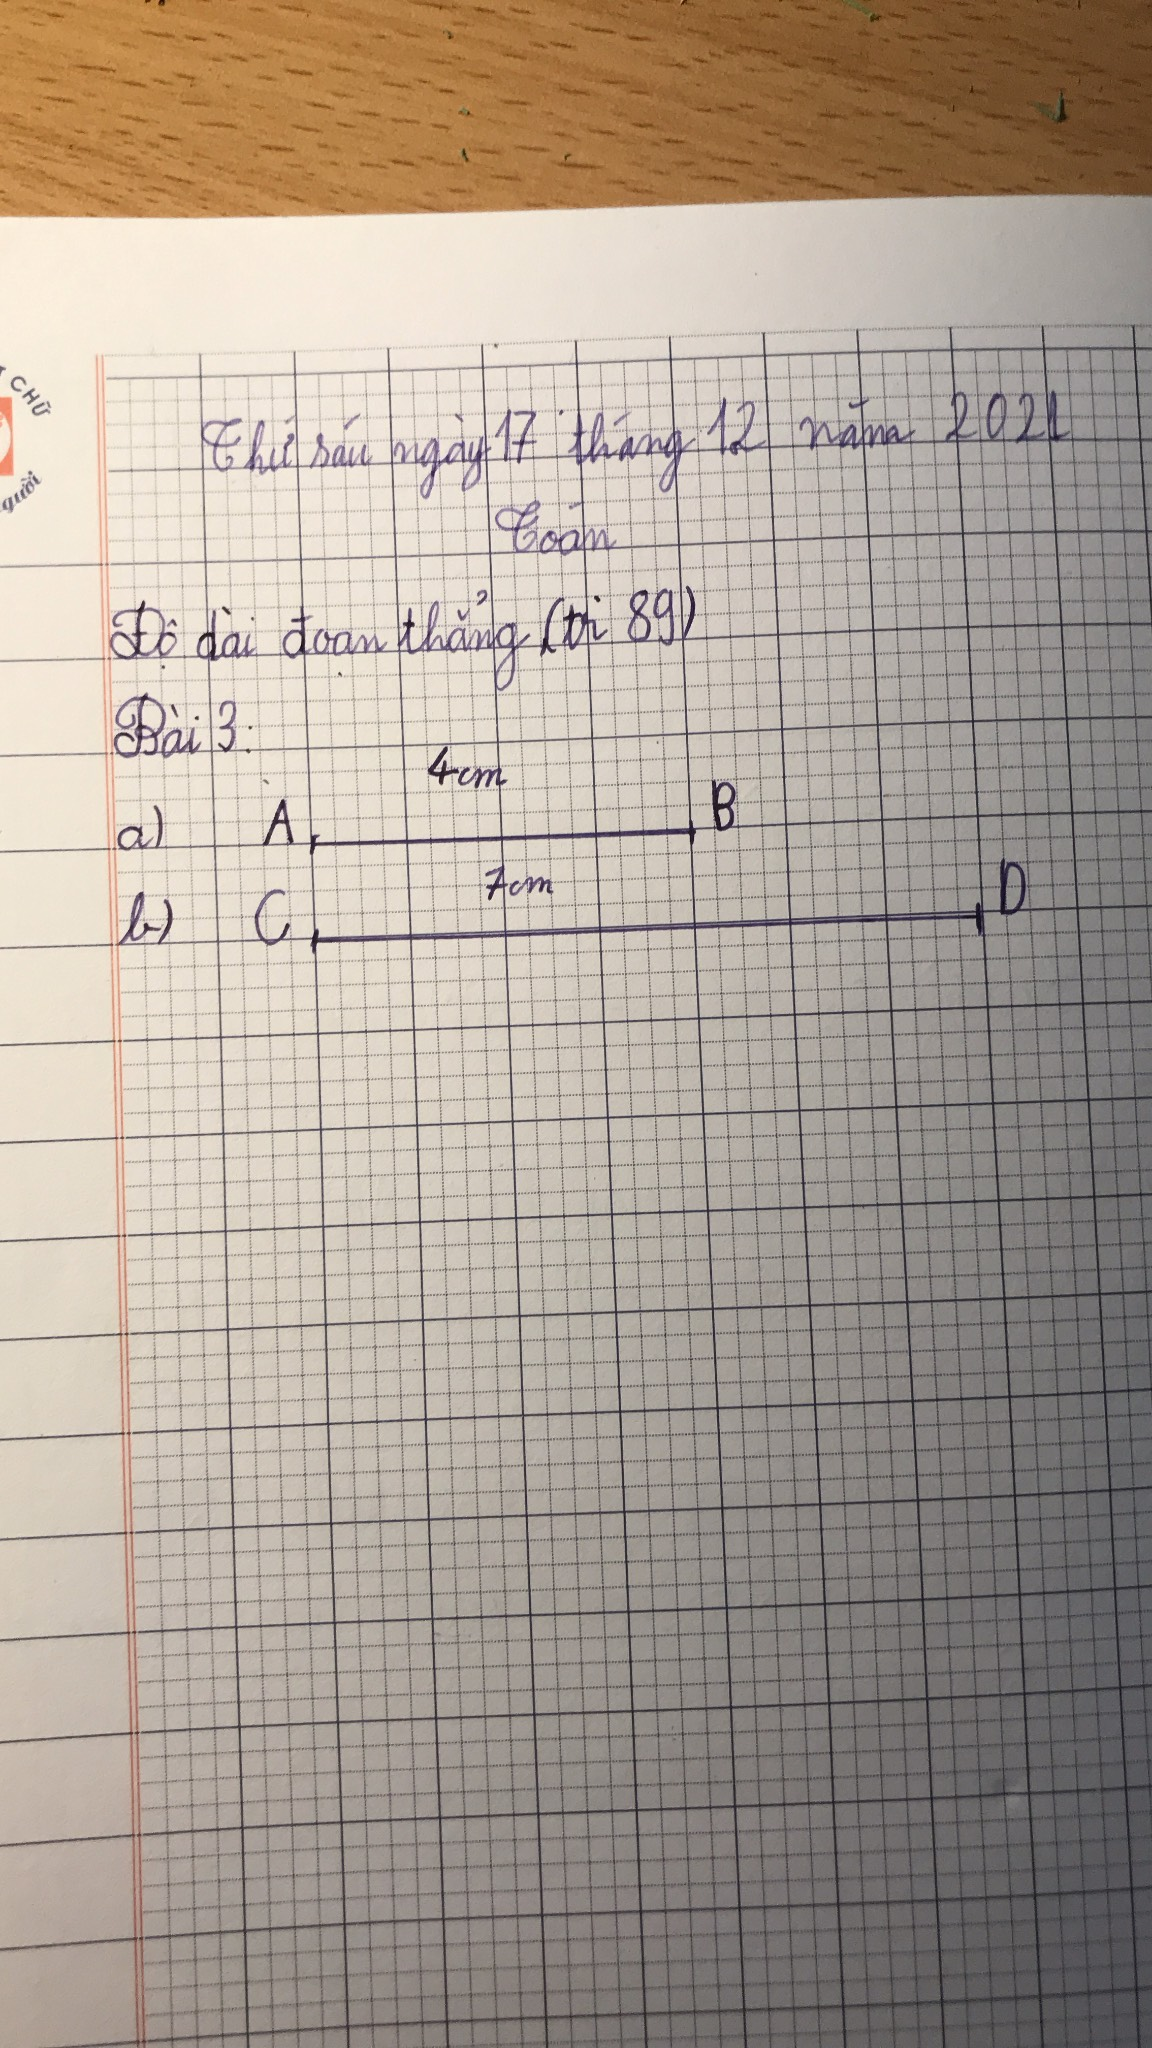 CHỮ
người
Thứ sáu ngày 17 tháng 12 năm 2021
Toán
Độ dài đoan thẳng (tr 89)
Bài 3:
4cm
a) A B
7cm
b) C D